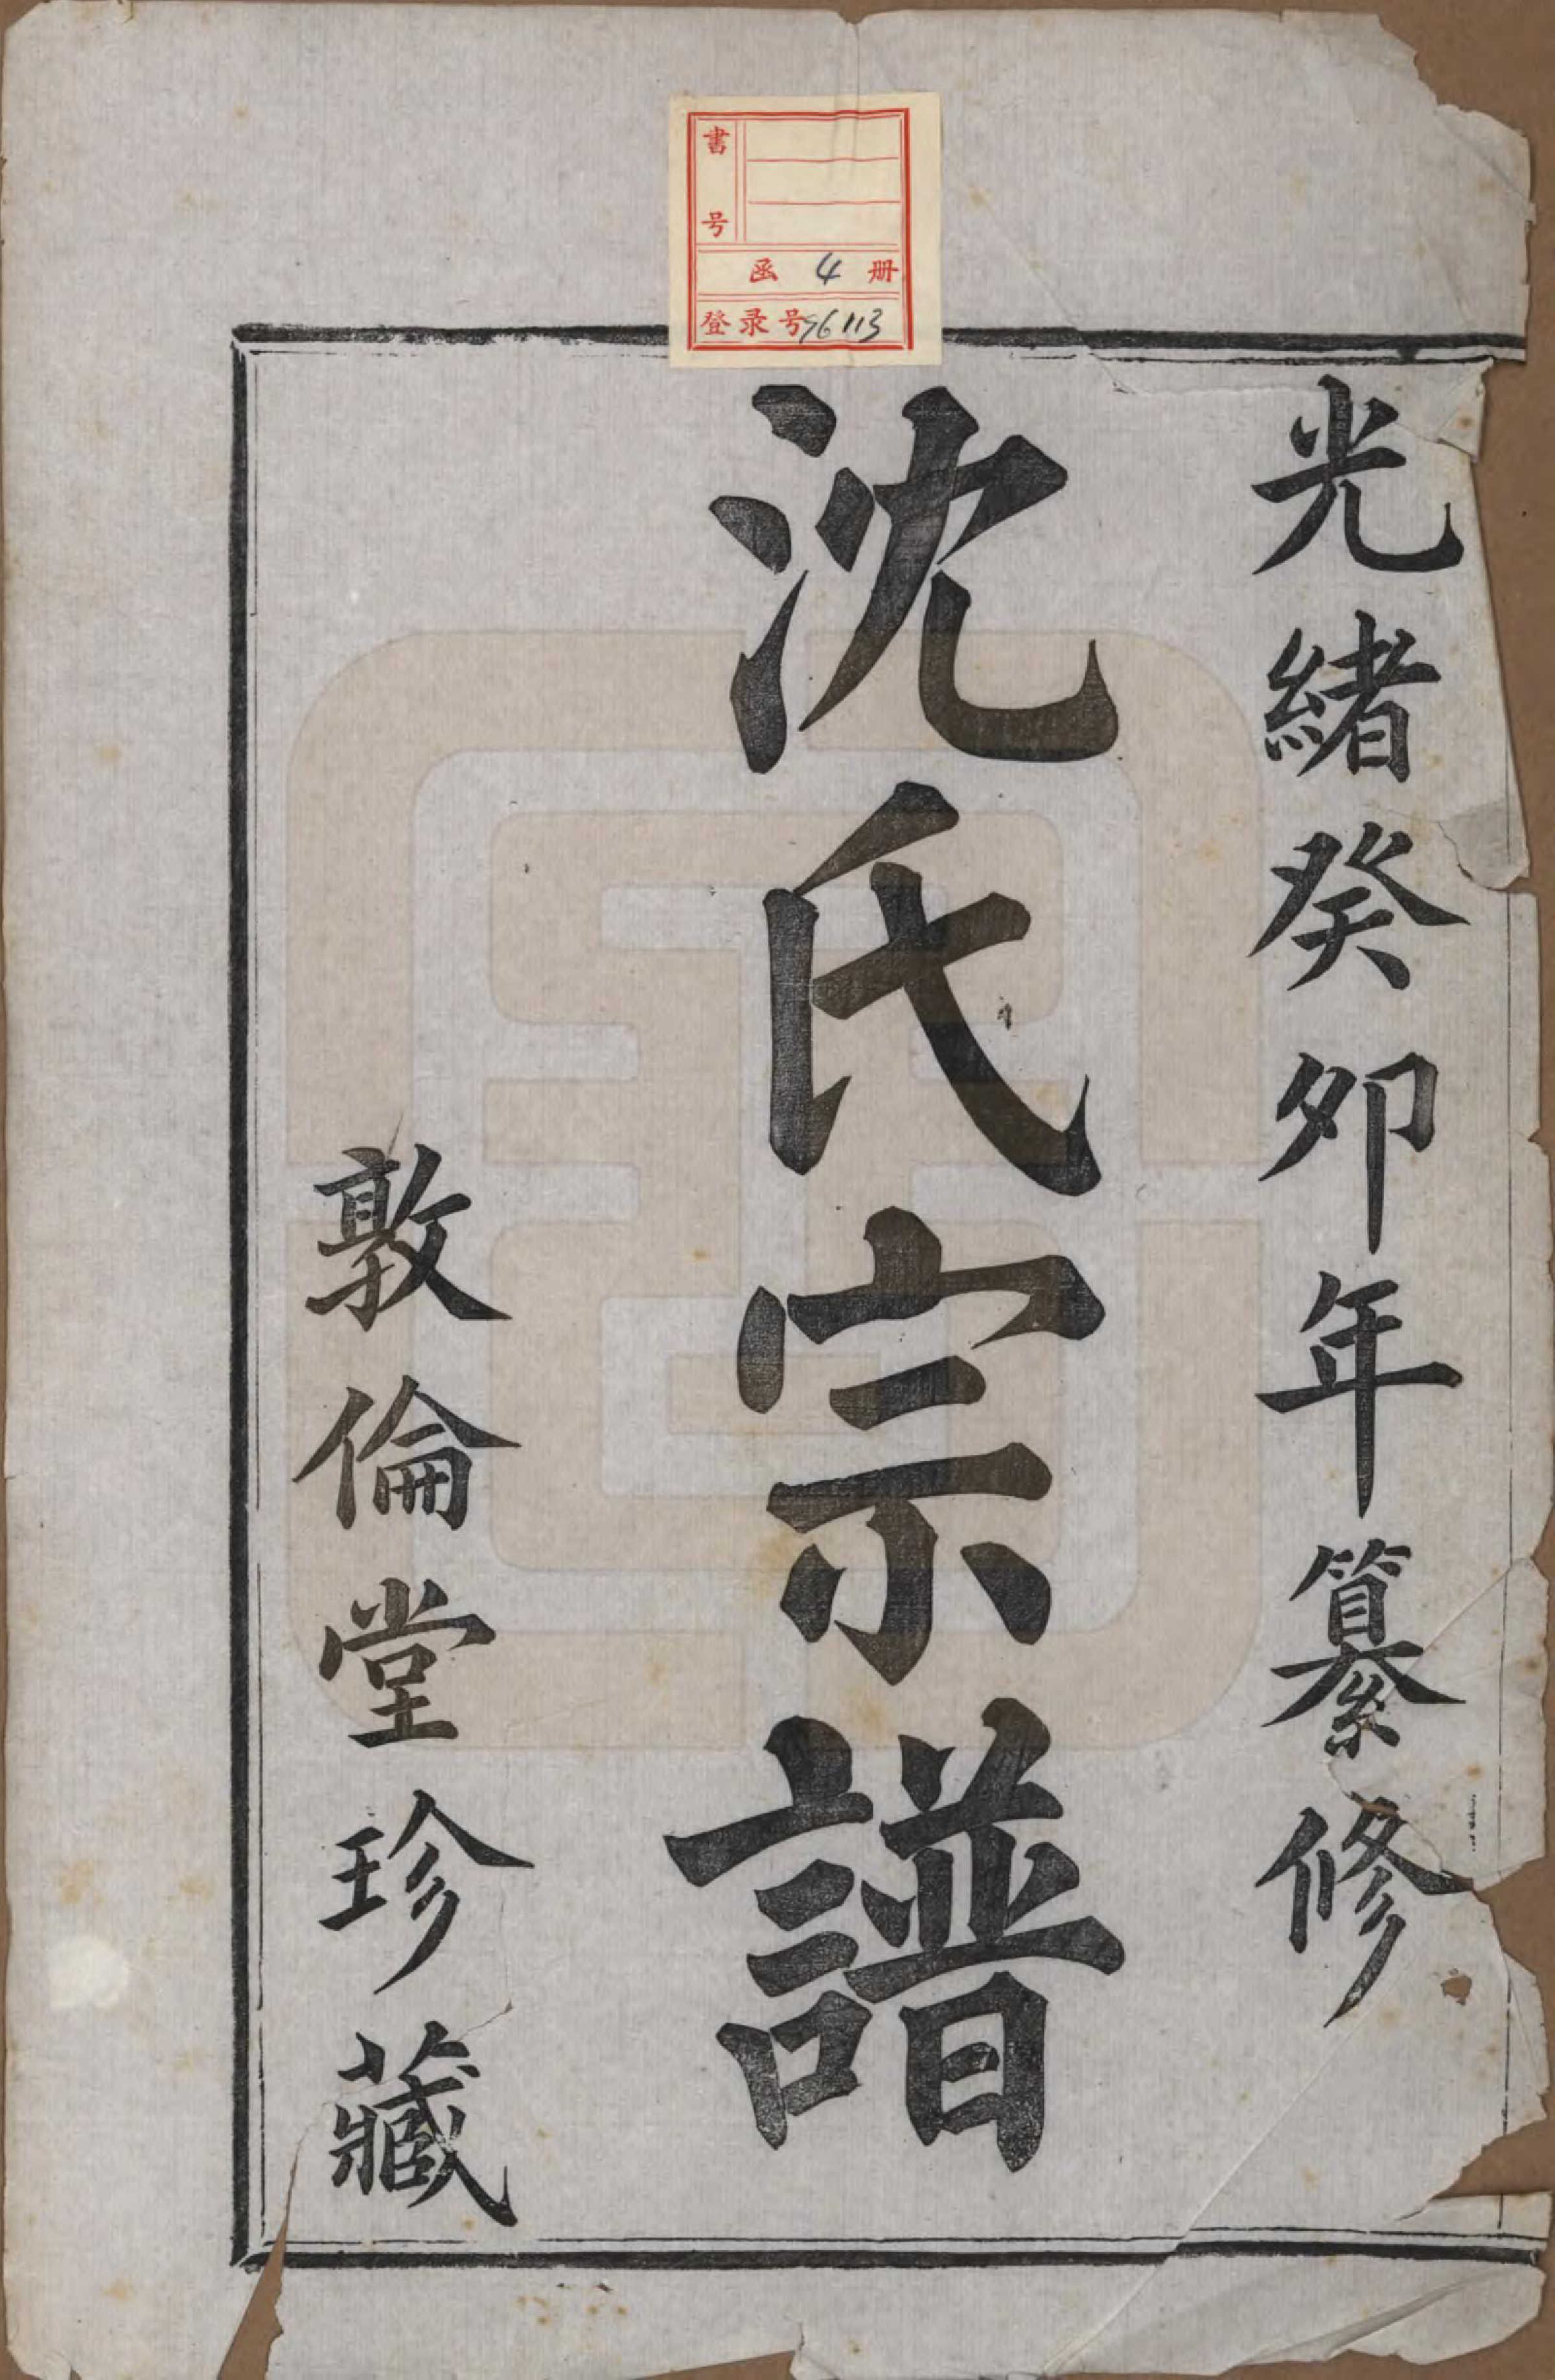 光緒癸卯年纂修
沈氏宗譜
敦倫堂珍藏
書号
函 4 册
登录号 96113